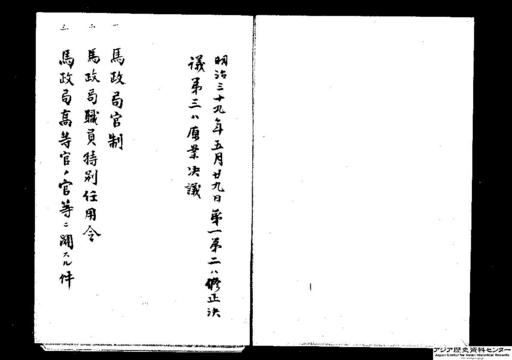 明治三十九年五月廿九日第一第二ハ修正決
議第三ハ原案決議
一 馬政局官制
二 馬政局職員特別任用令
三 馬政局高等官ノ官等ニ関スル件
アジア歴史資料センター
Japan Center for Asian Historical Records